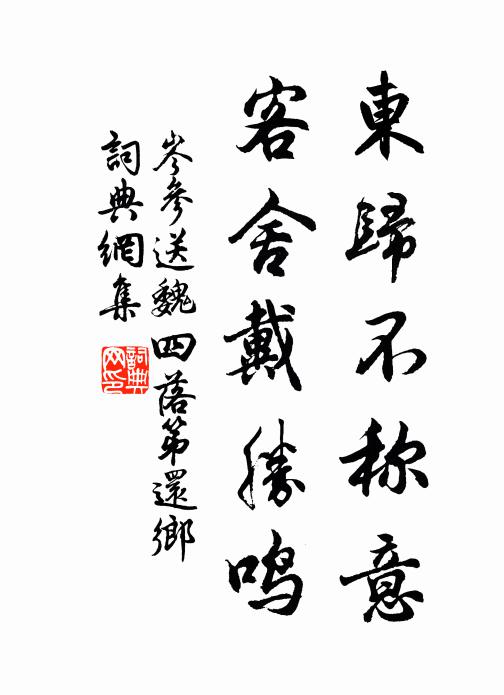 東歸不称意
客舍戴勝鸣
岑參送魏四落第還鄉
詞典網集
詞典
网印